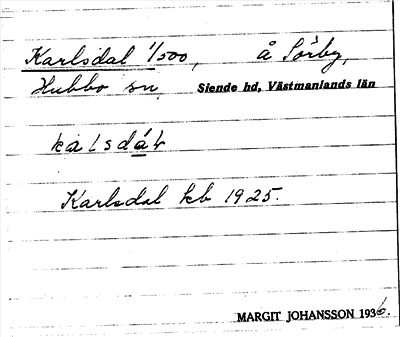 Karlsdal 1/500, å Sörby,
Hubbo sn Siende hd, Västmanlands län
kaLsdáL
Karlsdal kb 1925.
MARGIT JOHANSSON 1936.